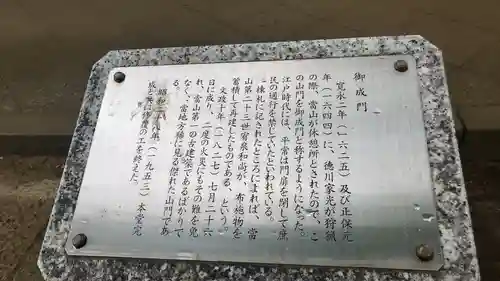 御成門
寛永二年（一六二五）及び正保元
年（一六四四）に、徳川家光が狩猟
の際、当山が休憩所とされたので、こ
の山門を御成門と称するようになった。
江戸時代には、平常は門扉を閉して庶
民の通行を禁じていたといわれている。
棟札に記されたところによれば、当
山第二十三世宥泉和尚が、布施物を
蓄積して再建したものである、という。
文政十年（一八二七）七月二十六
日に成り、二度の火災にもその難を免
れ、当山第一の古建築であるばかりで
なく、当地方稀に見る傑れた山門であ
る。
昭和二十八年（一九五三）本堂完
成と共に修覆の工を終えた。